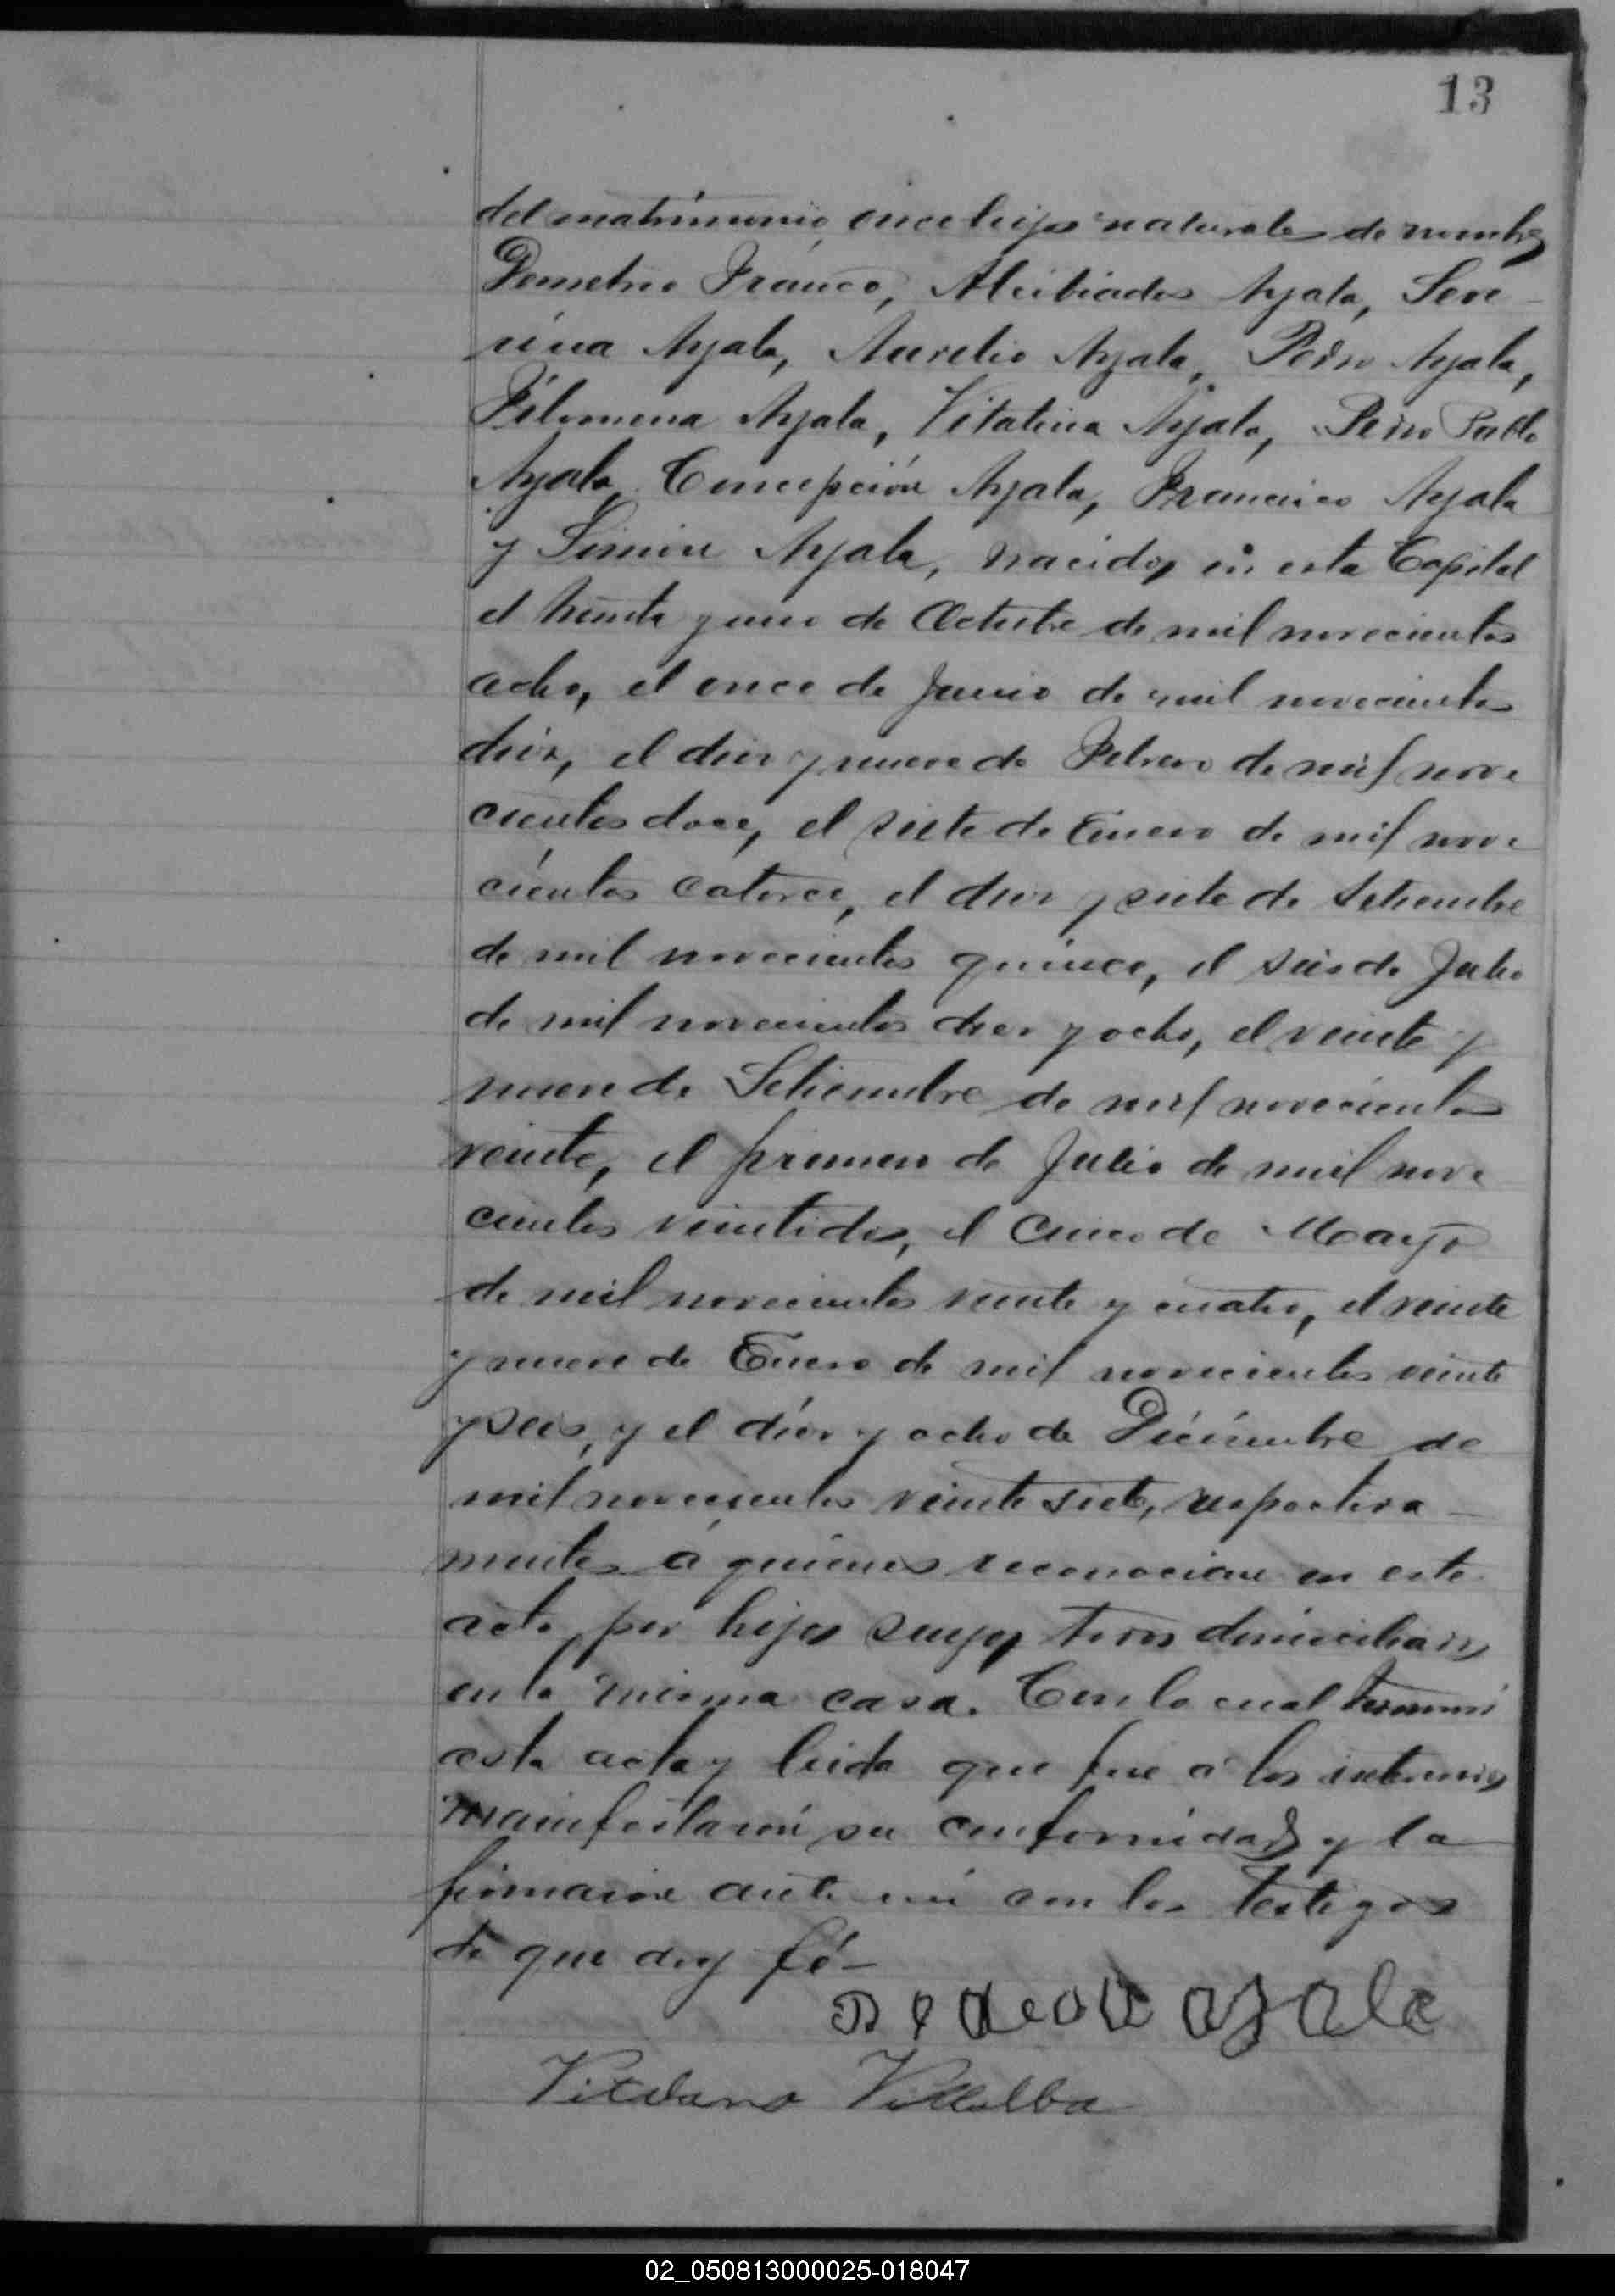 13
del matrimonio, once hijos naturales de nombres
Demetrio Franco, Alcibiades Ayala, Seve-
rina Ayala, Aurelio Ayala, Pedro Ayala,
Filomena Ayala, Vitalina Ayala, Pedro Pablo
Ayala, Concepción Ayala, Francisco Ayala
y Simón Ayala, nacidos en esta Capital
el treinta y uno de Octubre de mil novecientos
ocho, el once de Junio de mil novecientos
diez, el diez y nueve de Febrero de mil nove
cientos doce, el siete de Enero de mil nove
cientos catorce, el diez y siete de Setiembre
de mil novecientos quince, el seis de Julio
de mil novecientos diez y ocho, el veinte y
nueve de Setiembre de mil novecientos
veinte, el primero de Julio de mil nove
cientos veintidos, el cinco de Mayo
de mil novecientos veinte y cuatro, el veinte
y nueve de Enero de mil novecientos veinte
y seis, y el diez y ocho de Diciembre de
mil novecientos veinte siete, respectiva-
mente á quienes reconocian en este
acto por hijos suyos domiciliados
en la misma casa. Con lo cual terminó
esta acta y leida que fue á los interesados
manifestaron su conformidad y la
firmaron ante mi con los testigos
de que doy fé-
ayala
Villalba
02_050813000025-018047